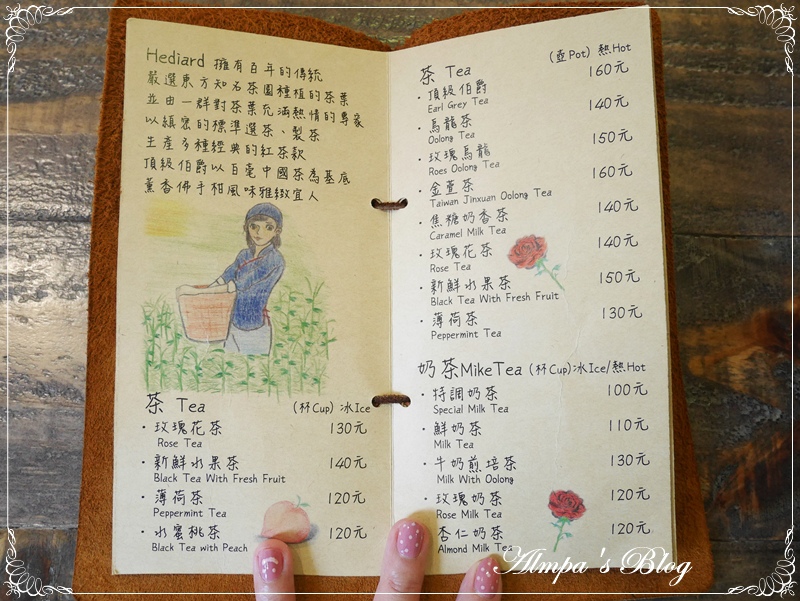 Hediard 擁有百年的傳統
嚴選東方知名茶園種植的茶葉
並由一群對茶葉充滿熱情的專家
以縝密的標準選茶、製茶
生產多種經典的紅茶款
頂級伯爵以白毫中國茶為基底
薰香佛手柑風味雅緻宜人
茶 Tea (杯Cup) 冰Ice
・玫瑰花茶 130元
Rose Tea
・新鮮水果茶 140元
Black Tea With Fresh Fruit
・薄荷茶 120元
Peppermint Tea
・水蜜桃茶 120元
Black Tea with Peach
茶 Tea (壺Pot) 熱Hot
・頂級伯爵 160元
Earl Grey Tea
・烏龍茶 140元
Oolong Tea
・玫瑰烏龍 150元
Roes Oolong Tea
・金萱茶 160元
Taiwan Jinxuan Oolong Tea
・焦糖奶香茶 140元
Caramel Milk Tea
・玫瑰花茶 140元
Rose Tea
・新鮮水果茶 150元
Black Tea With Fresh Fruit
・薄荷茶 130元
Peppermint Tea
奶茶MikeTea (杯Cup)冰Ice/熱Hot
・特調奶茶 100元
Special Milk Tea
・鮮奶茶 110元
Milk Tea
・牛奶煎培茶 130元
Milk With Oolong
・玫瑰奶茶 120元
Rose Milk Tea
杏仁奶茶 120元
Almond Milk Tea
Almpa's Blog